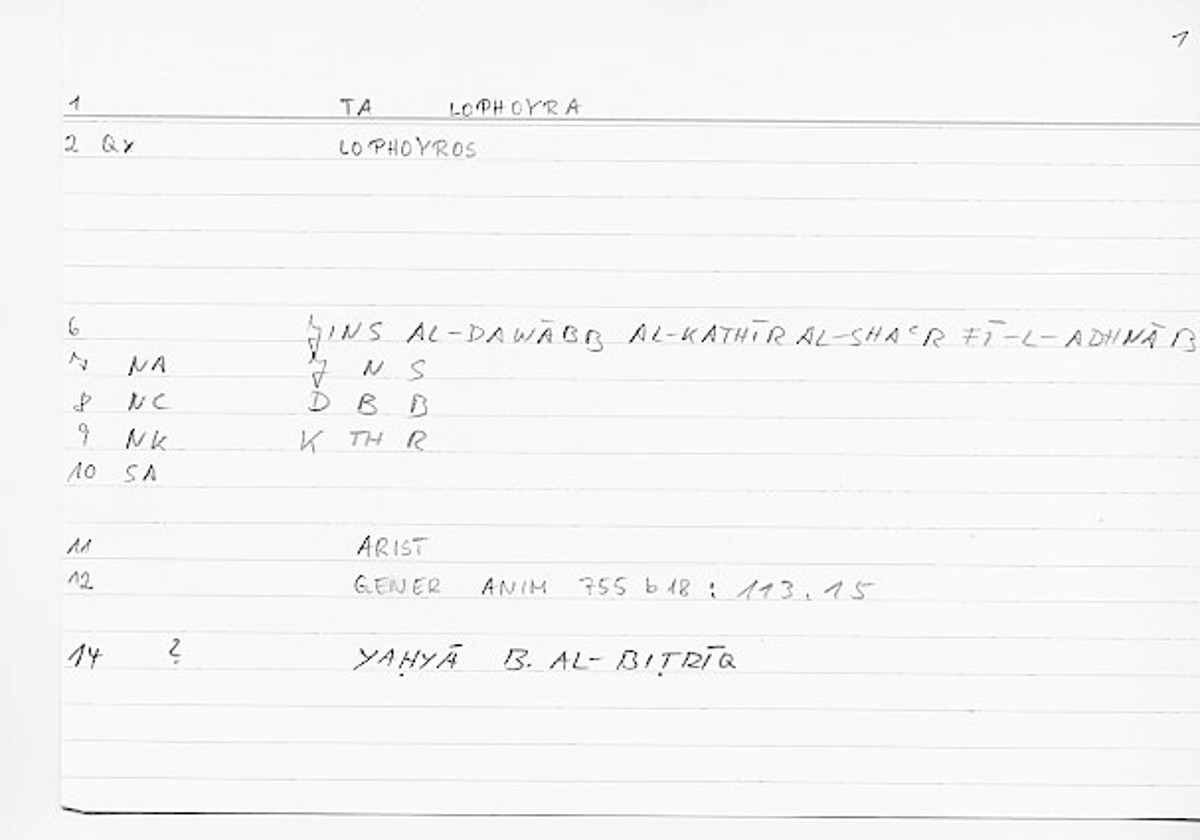 1
1 TA LOPHOYRA
2 Qr LOPHOYROS
6 ǦINS AL-DAWĀBB AL-KATHĪR AL-SHAᶜR FĪ-L-ADHNĀB
7 NA Ǧ N S
8 NC D B B
9 NK K TH R
10 SA
11 ARIST
12 GENER ANIM 755 b 18 : 113.15
14 ? YAḤYĀ B. AL-BIṬRĪQ